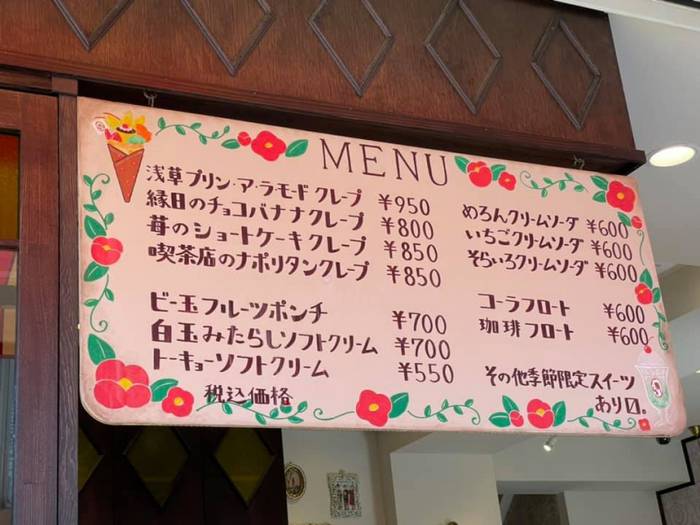 MENU
浅草プリン・ア・ラモード クレープ ¥950
縁日のチョコバナナクレープ ¥800
苺のショートケーキクレープ ¥850
喫茶店のナポリタンクレープ ¥850
ビー玉フルーツポンチ ¥700
白玉みたらしソフトクリーム ¥700
トーキョーソフトクリーム ¥550
税込価格
めろんクリームソーダ ¥600
いちごクリームソーダ ¥600
そらいろクリームソーダ ¥600
コーラフロート ¥600
珈琲フロート ¥600
その他季節限定スイーツ
あり〼。